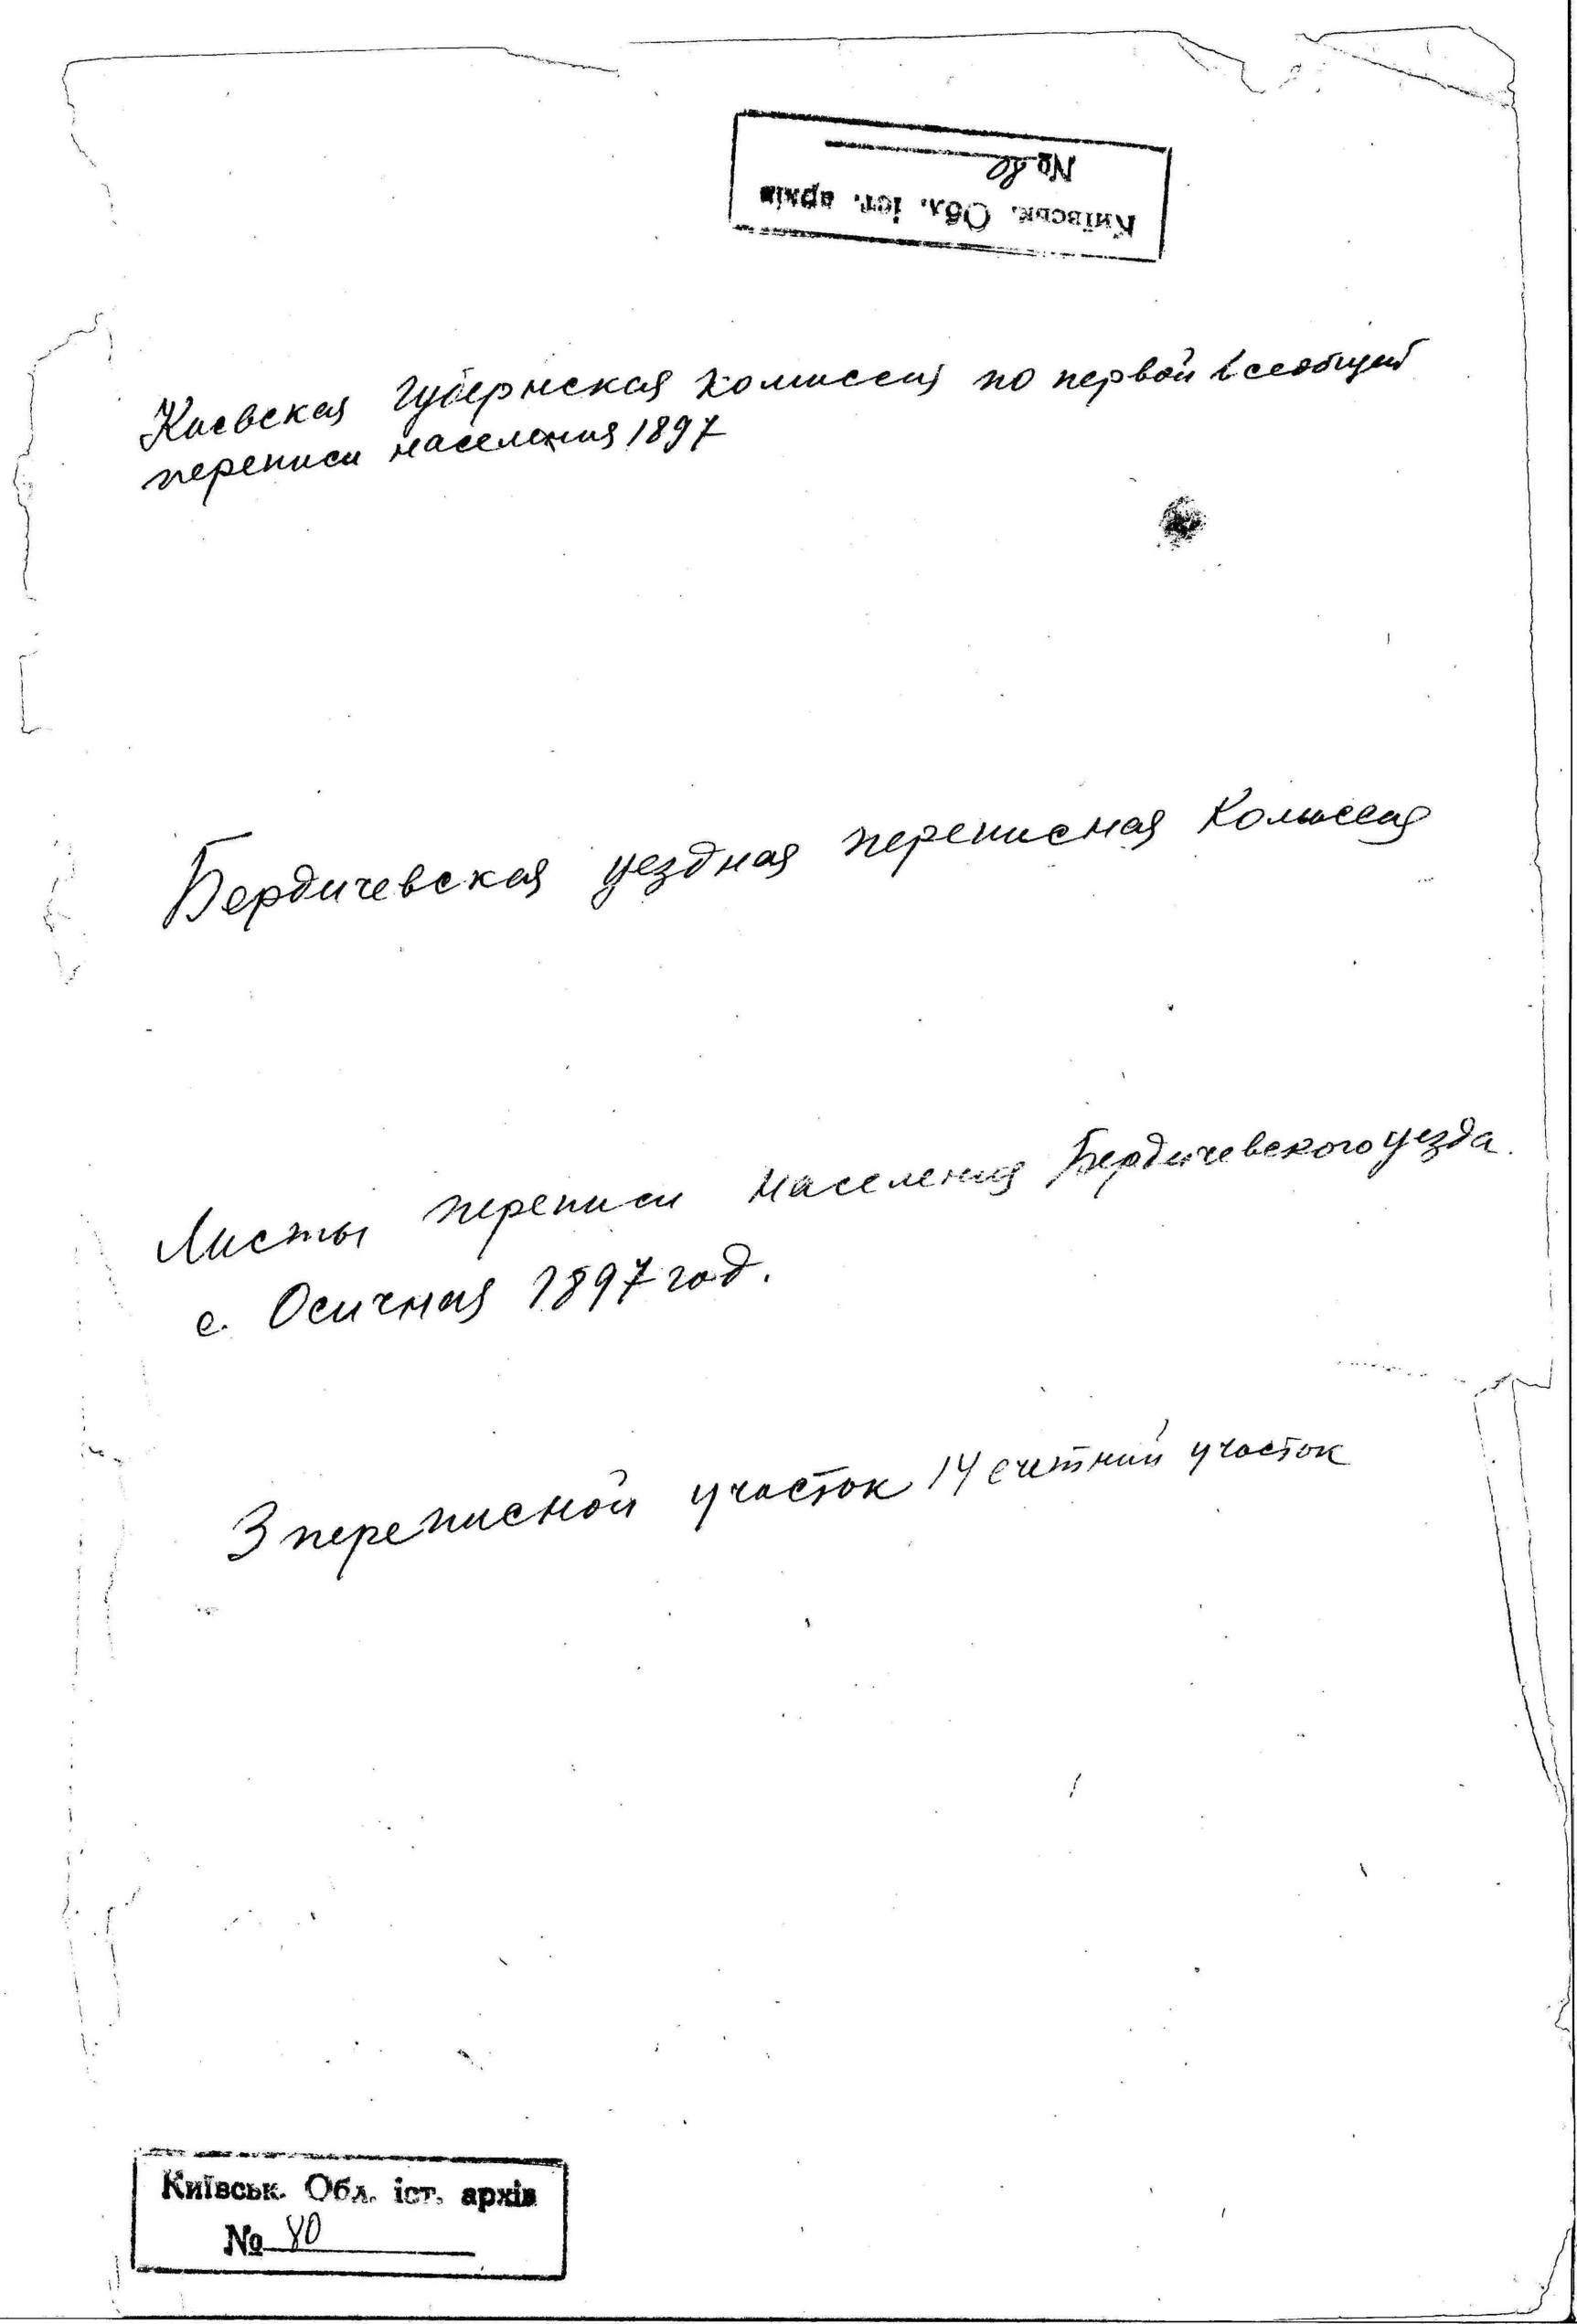 Київськ. Обл. іст. архів
№ 80
Киевская губернская комиссия по первой всеобщей
переписи населения 1897
Бердичевская уездная переписная Комиссия
Листы переписи населения Бердичевского уезда.
с. Осичная 1897 год.
3 переписной участок 14 счетний участок
Київськ. Обл. іст. архів
№ 80